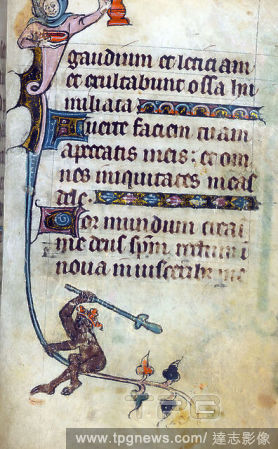 gaudium et leticiam
et exultabunt ossa hu
miliata
Auerte faciem tuam
a peccatis meis: et om
nes iniquitates meas
dele.
Cor mundum crea i
me deus spm rectum i
noua in uisceribus me
TPG
www.tpgnews.com/達志影像